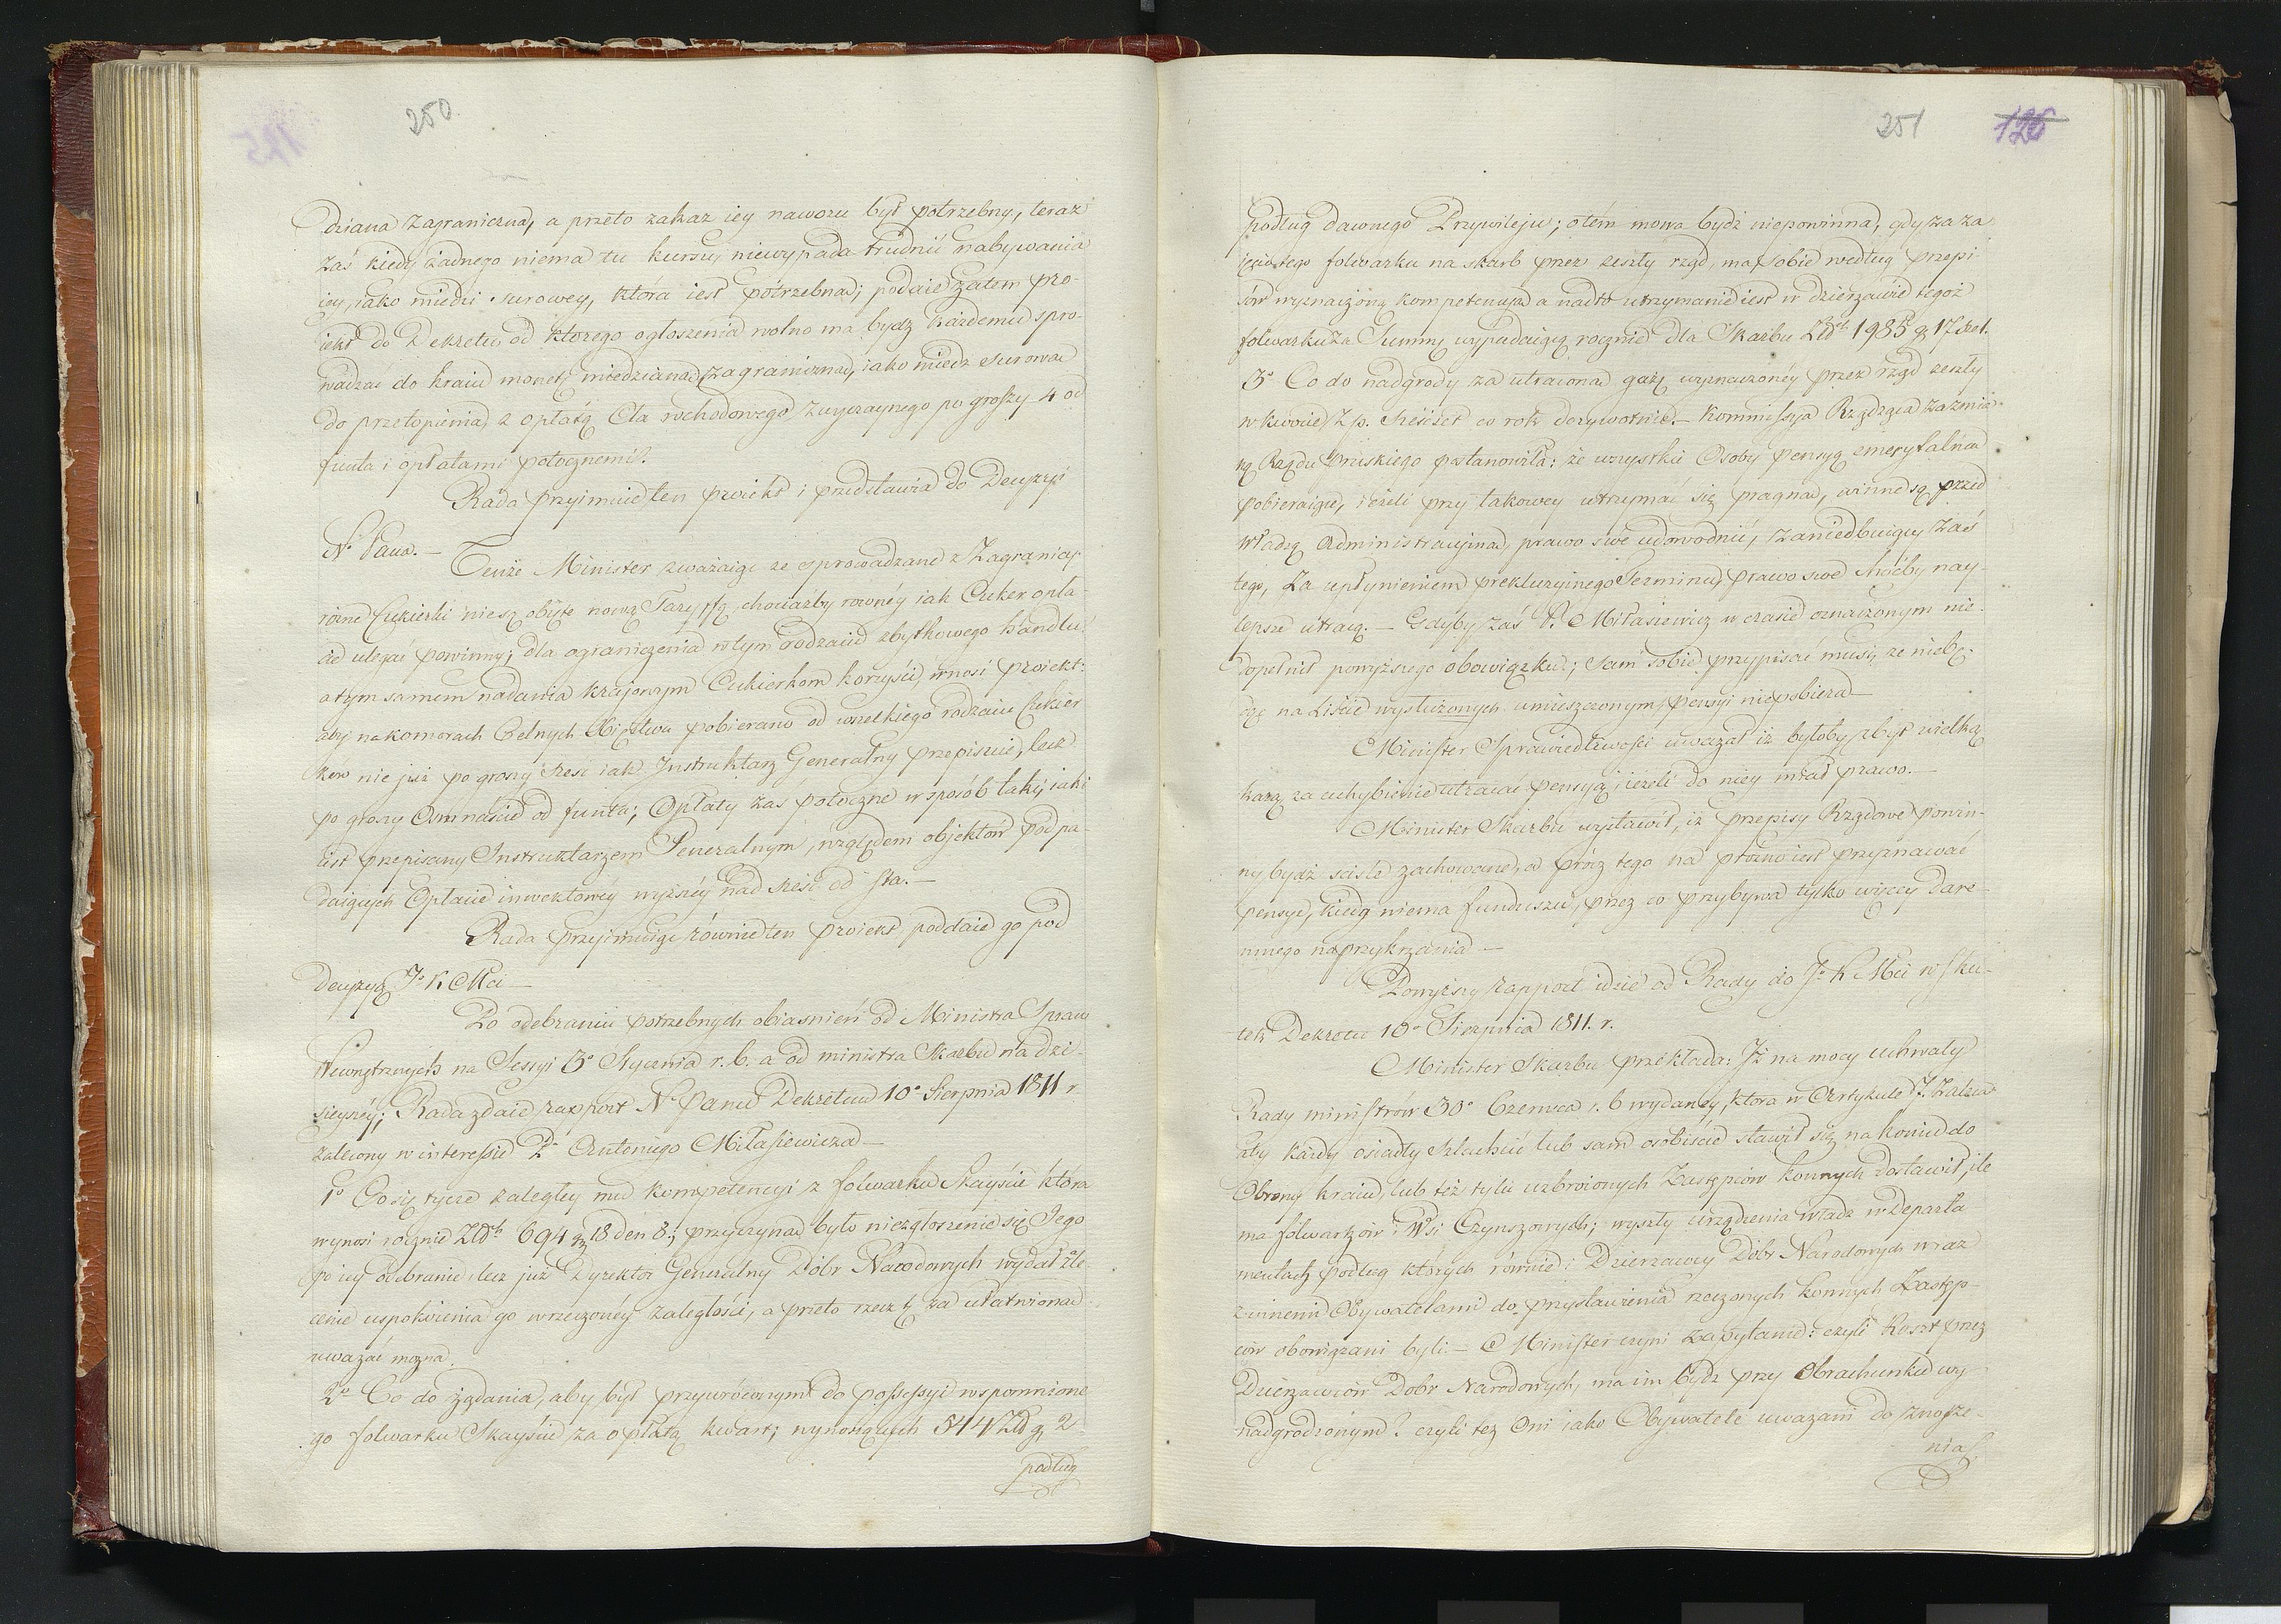 250
dziana Zagraniczna, a przeto zakaz iey nawozu był potrzebny, teraz
zaś kiedy żadnego niema tu kursu, niewypada trudnić nabywania
iey, iako miedzi surowey, która iest potrzebna; podaie zatem pro-
iekt do Dekretu, od którego ogłoszenia wolno ma bydz każdemu spro-
wadzać do kraiu monetę miedzianą zagraniczną, iako miedz surową
do przetopienia, z opłatą Cła wchodowego zwyczaynego po groszy 4 od
funta i opłatami potocznemi.
Rada przyimuie ten proiekt i przedstawia do Decyzyi
N. Pana. —
Tenże Minister zważaiąc że sprowadzane z Zagranicy
różne Cukierki nie są obięte nową Taryffą, chociażby rowney iak Cukier opła-
cie ulegać powinny; dla ograniczenia w tym rodzaiu zbytkowego handlu
a tym samem nadania krajowym Cukierkom korzyści, wnosi proiekt:
aby na komorach Celnych Xięstwa pobierano od wszelkiego rodzaiu Cukier
ków nie już po groszy sześć iak Instruktarz Generalny przepisuie, lecz
po groszy Osmnaście od funta; Opłaty zaś potoczne w sposób taki, iaki
iest przepisany Instruktarzem Generalnym, względem objektów podpa-
daiących Opłacie inwektowéy wyższéy nad sześć od sta. —
Rada przyimuiąc równie ten proiekt poddaie go pod
Decyzyą J. K. Mci —
Po odebraniu potrzebnych obiasnień od Ministra Spraw
Wewnętrznych na Sessyi 3º Stycznia r. b. a od ministra Skarbu na dzi-
sieyszéy; Rada zdaie rapport N. Panu Dekretem 10º Sierpnia 1811 r
zalecony w interessie P. Antoniego Miłasiewicza —
1º Co się tycze zaległey mu kompetencyi z folwarku Skayście która
wynosi rocznie Złt 694 gr 18 den 8.; przyczyną było niezgłoszenie się Jego
po iey odebranie, lecz już Dyrektor Generalny Dóbr Narodowych wydał zle-
cenie uspokoienia go w rzeczonéy zaległości, a przeto rzecz tę za ułatwioną
uważać można.
2º Co do żądania, aby był przywróconym do possessyi wspomnione
go folwarku Skayście za opłatą kwarty wynoszących 544 Zł gr 2
podług
251 126
podług dawnego Przywileju; o tém mowa bydź niepowinna, gdy za za
ięcie tego folwarku na skarb przez zeszły rząd, ma sobie według przepi
sów wyznaczoną kompetencyą a nadto utrzymanie iest w dzierżawie tegoż
folwarku za Summę wypadaiącą rocznie dla Skarbu Złt 1985 gr 17 szel.
3º Co do nadgrody za utraconą gażę wyznaczonéy przez rząd zeszły
w kwocie Zp. sześćset co rok dożywotnie. — Kommissya Rządząca za zmia-
ną Rządu Pruskiego postanowiła: że wszystkie Osoby pensyą emerytalną
pobieraiące, ieżeli przy takowey utrzymać się pragną, winne są przed
Władzą Administracyiną prawo swe udowodnić, zaniedbuiący zaś
tego, za upłynieniem prekluzyinego Terminu, prawo swe choćby nay-
lepsze utracą. — Gdyby zaś P. Miłasiewicz w czasie oznaczonym nie
dopełnił powyższego obowiązku; sam sobie przypisać musi, że nie bę-
dąc na Liście wysłużonych umieszczonym, pensyi niepobiera —
Minister Sprawiedliwości uważał iż byłoby zbyt wielką
karą za uchybienie utracać pensyą, ieżeli do niey miał prawo. —
Minister Skarbu wystawił, iż przepisy Rządowe powin-
ny bydź ściśle zachowane, a prócz tego na próżno iest przyznawać
pensye, kiedy niema funduszu, przez co przybywa tylko więcey dare-
mnego naprzykrzania —
Powyższy rapport idzie od Rady do J. K Mci w sku-
tek Dekretu 10º Sierpnia 1811. r.
Minister Skarbu przekłada: Iż na mocy uchwały
Rady ministrów 30º Czerwca r. b wydanéy, która w Artykule J. zaleca
aby każdy osiadły Szlachcic lub sam osobiście stawił się na koniu do
Obrony kraiu, lub też tylu uzbroionych Zastępców konnych dostawił, ile
ma folwarków i Wsi Czynszowych; wyszły urządzenia władz w Departa-
mentach podług których równie i Dzierżawcy Dóbr Narodowych wraz
z innemi Obywatelami do przystawienia rzeczonych konnych Zastęp-
ców obowiązani byli. — Minister czyni zapytanie: czyli koszt przez
Dzierżawców Dóbr Narodowych, ma im bydź przy Obrachunku wy
nadgrodzonym? czyli też Oni iako Obywatele uważani do znosze-
nia